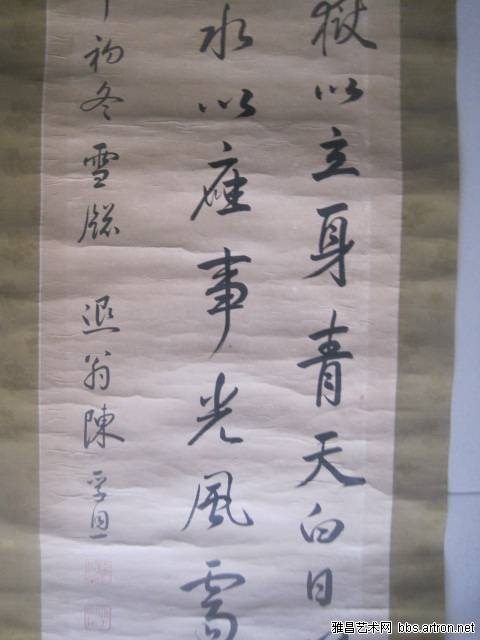 嶽以立身青天白日
水以應事光風霽
初冬雪牕 退翁陳孚恩
雅昌艺术网 bbs.artron.net